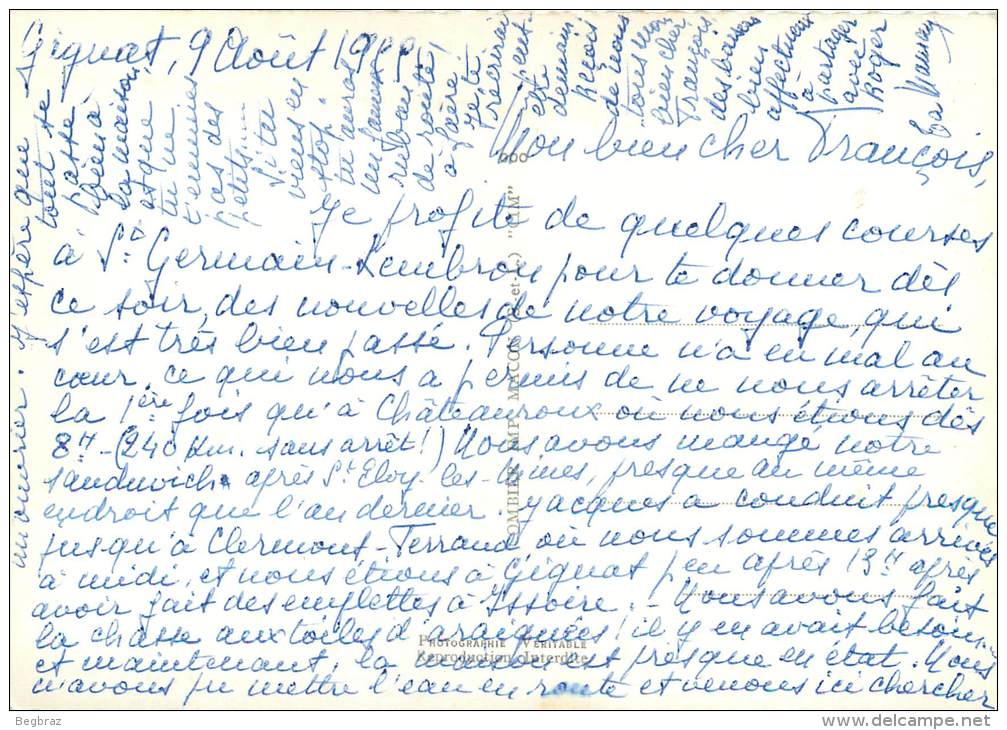 Gignat, 9 Août 19
Mon bien cher François,
Je profite de quelques courses
à St. Germain-Lembron pour te donner dès
ce soir, des nouvelles de notre voyage, qui
s'est très bien passé. Personne n'a eu mal au
cœur, ce qui nous a permis de ne nous arrêter
la 1ère fois qu'à Châteauroux où nous étions dès
8H - (240 Km. sans arrêt!) Nous avons mangé notre
sandwich après St Eloy-les-Mines, presque au même
endroit que l'an dernier. Jacques a conduit presque
jusqu'à Clermont-Ferrand où nous sommes arrivés
à midi, et nous étions à Gignat peu après 13H après
avoir fait des emplettes à Issoire. - Nous avons fait
la chasse aux toiles d'araignées! il y en avait besoin...
et maintenant, la est presque en état. Nous
n'avons pu mettre l'eau en route et venons ici chercher
J'espère que
tout se
passe
bien à
la maison,
et que
tu ne
t'ennuies
pas des
petits...
Si tu
viens en
stop,
tu auras
un fameux
ruban
de route
à faire!
Je te
récrirai
peut-
être
demain
Reçois
de nous
tous mon
bien cher
François
des baisers
bien
affectueux
à
partager
avec
Roger
Ta Maman
PHOTOGRAPHIE VÉRITABLE
Reproduction Interdite
COMBIER IMP. MACON (S.-et-L.) "CIM"
Begbraz
delcampe.net